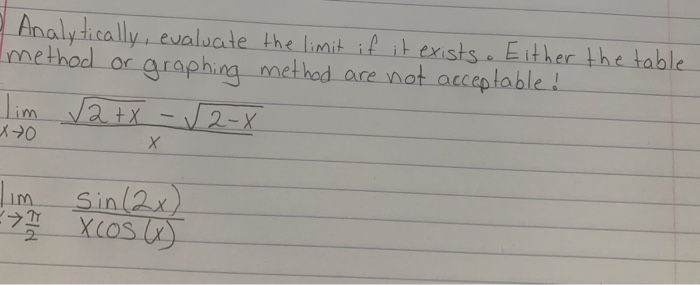 Analytically, evaluate the limit if it exists. Either the table
method or graphing method are not acceptable!
lim x→0 (√(2+x) - √(2-x)) / x
lim x→π/2 sin(2x) / (x cos(x))